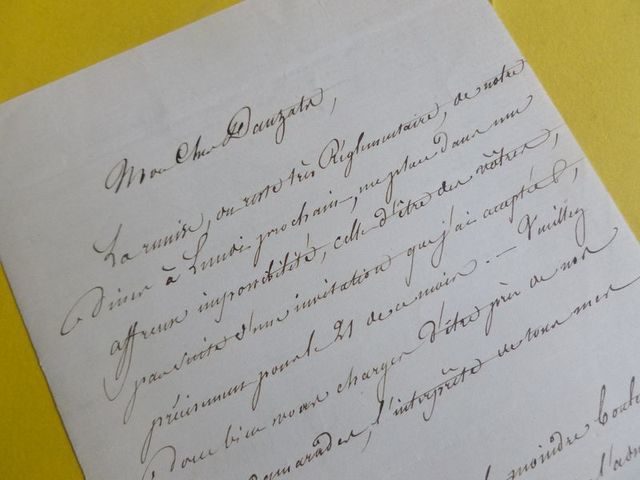 Mon Cher Dauzats,
La remise, du reste très Réglementaire, de notre
Diner à Lundi prochain, me place dans une
affreuse impossibilité, celle d'être des vôtres,
par suite d'une invitation que j'ai acceptée,
précisément pour le 21 de ce mois. — Veuillez
donc bien vous charger d'être près de nos
camarades, l'interprète de tous mes
moindre